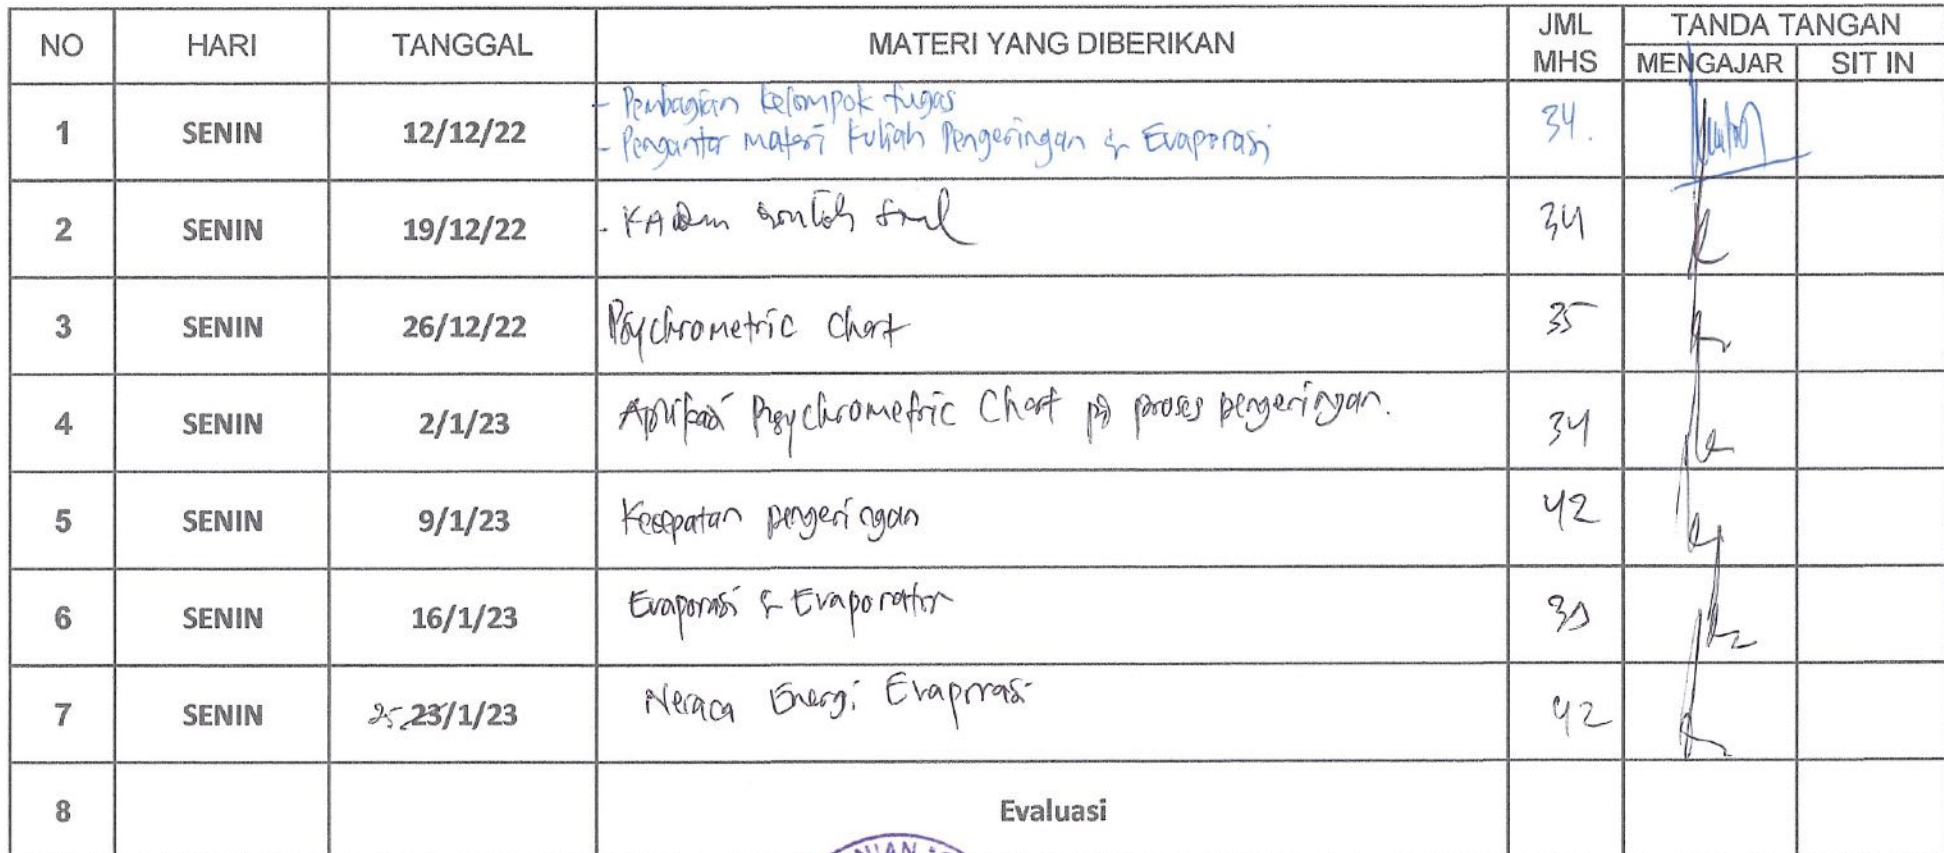 NO HARI TANGGAL MATERI YANG DIBERIKAN JML MHS TANDA TANGAN
MENGAJAR SIT IN
1 SENIN 12/12/22 - Pembagian kelompok tugas
- Pengantar materi kuliah Pengeringan & Evaporasi 34.
2 SENIN 19/12/22 - KA dan contoh soal 34
3 SENIN 26/12/22 Psychrometric Chart 35
4 SENIN 2/1/23 Aplikasi Psychrometric Chart pd proses pengeringan. 34
5 SENIN 9/1/23 Kecepatan pengeringan 42
6 SENIN 16/1/23 Evaporasi & Evaporator
7 SENIN 25 23/1/23 Neraca Energi Evaporasi 42
8 Evaluasi